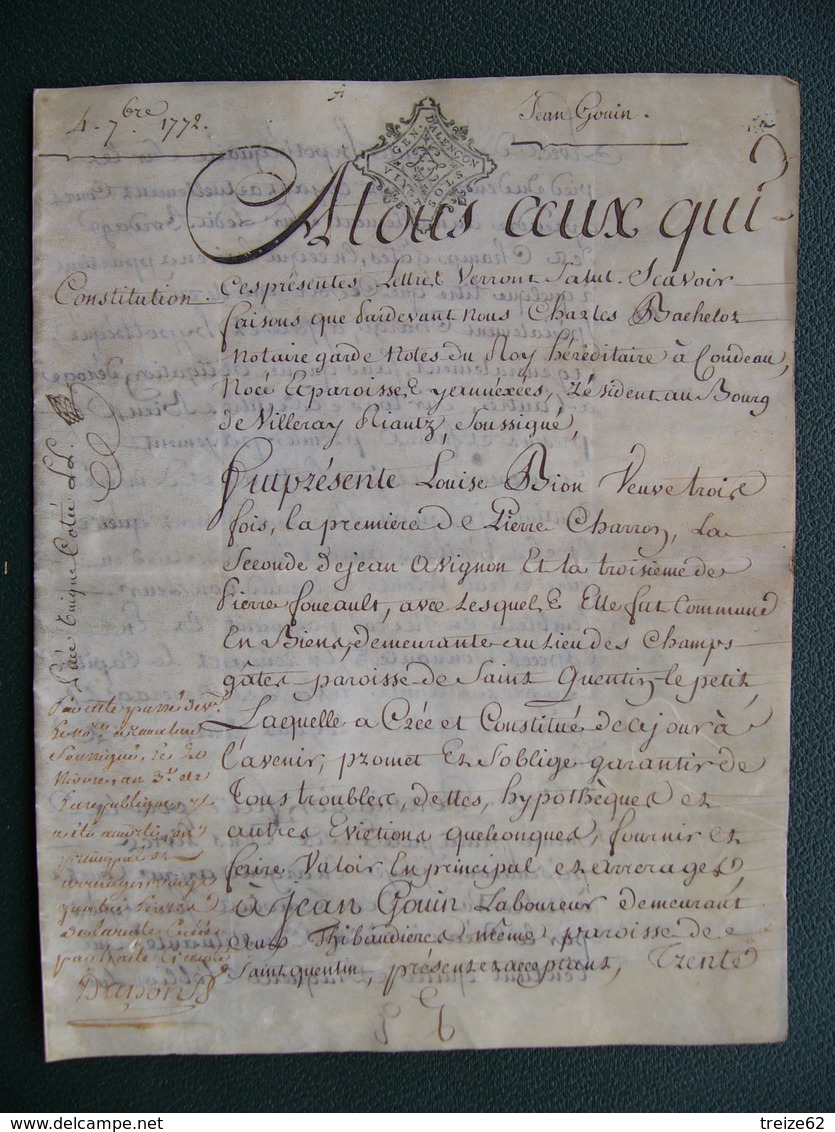 4. 7.bre 1772.
Jean Gouin.
GEN D'ALENCON
VINGT SOLS
A tous ceux qui
Constitution.
Ces présentes Lettres Verront Salut. Scavoir
faisons que Pardevant Nous Charles Bachelor
Notaire garde Notes du Roy héréditaire à Coudeau,
Nocé Et paroisses y annéxées, Résident au Bourg
de Villeray Riantz, Soussigné,
fut présente Louise Bion Veuve trois
fois, la premiere de Pierre Charron, La
Seconde de jean Avignon Et la troisieme de
Pierre foucault, avec Lesquels Elle fut Commune
En Biens, demeurante au Lieu des Champs
gâtes paroisse de Saint Quentin le petit,
Laquelle a Créé et Constitué de ce jour à
l'avenir, promet Et S'oblige garantir de
Tous troubles, dettes, hypothèques et
autres Evictions quelconques, fournir et
faire Valoir En principal et arrerages,
à Jean Gouin Laboureur demeurant
aux Thibaudieres même paroisse de
Saint quentin, présent et acceptant, Trente
piéce Unique Cotée LL.
Par acte passé dev.t
Soussigné, le 20
Nivose an 3.e de
La republique
a été amorti en
principal et
arrerages
Dupont
treize62